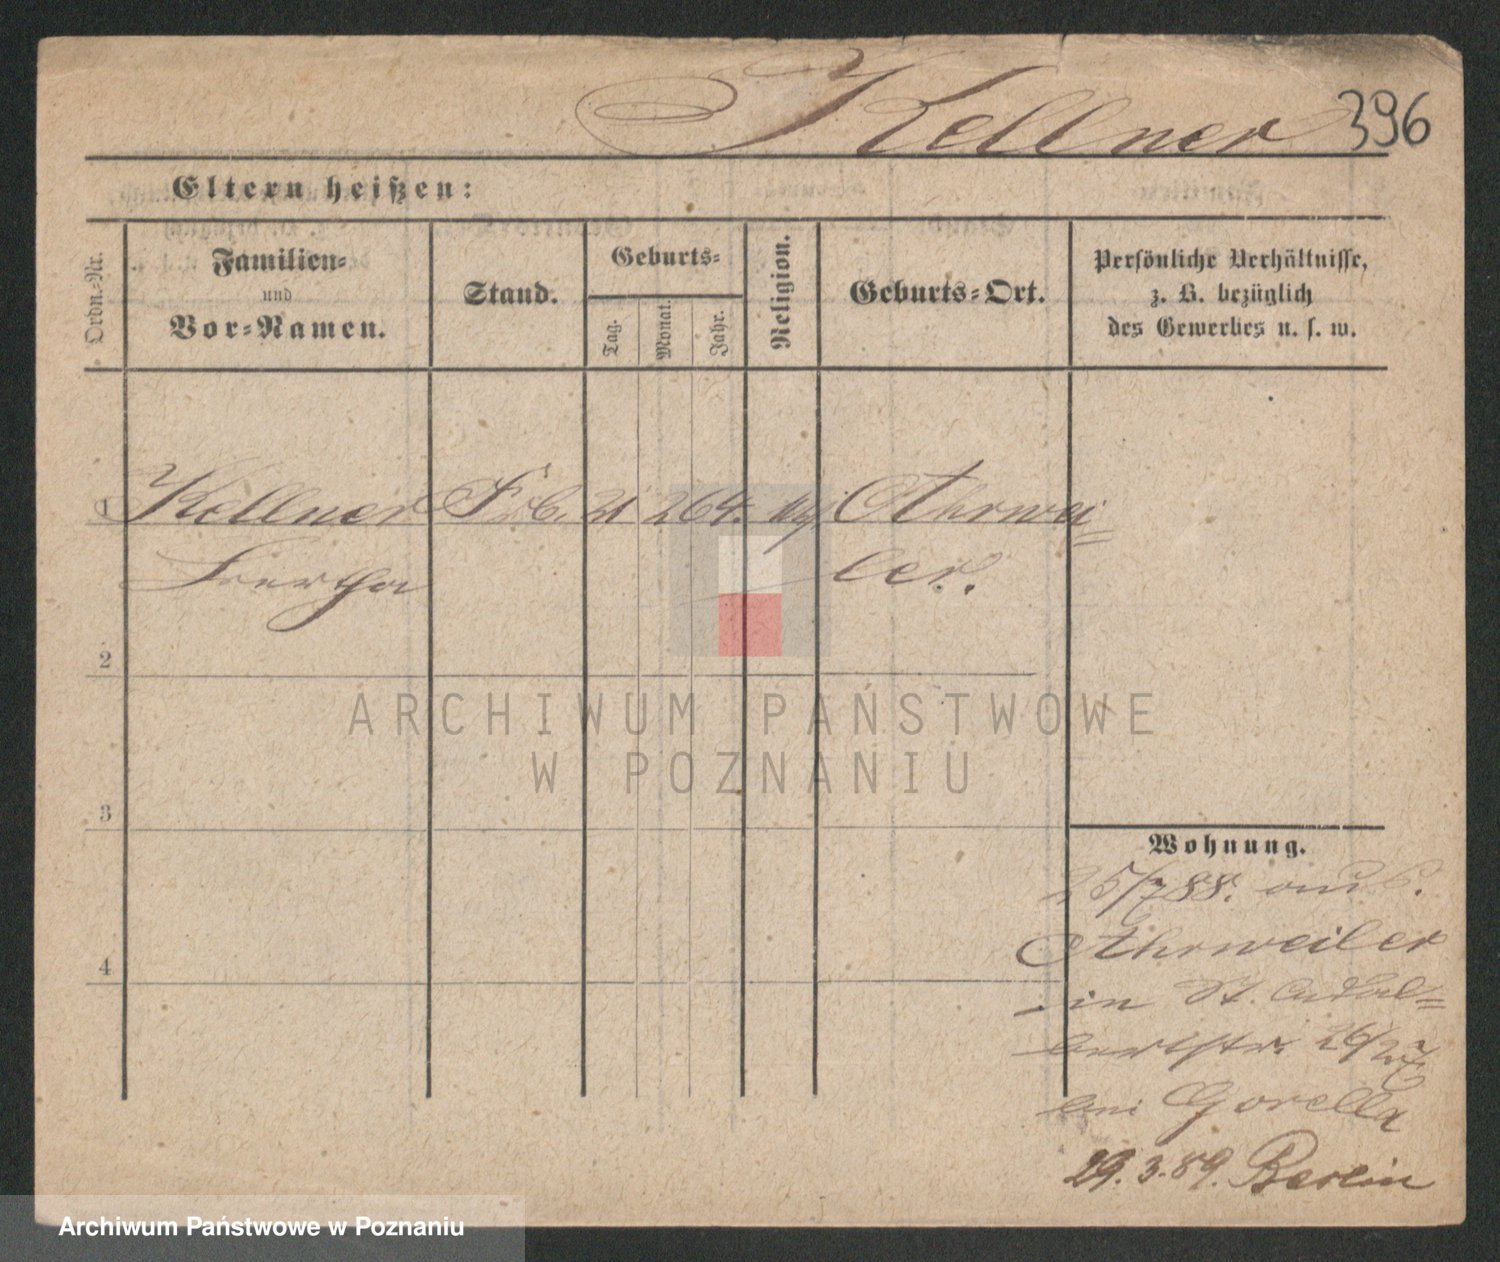 Kellner 396
Eltern heißen:
Ordn.-Nr.
Familien-
und
Vor-Namen.
Stand.
Geburts-
Tag.
Monat.
Jahr.
Religion.
Geburts-Ort.
Persönliche Verhältnisse,
z. B. bezüglich
des Gewerbes u. s. w.
1 Kellner 21 2 64. Ahrwei=
ler.
2
3
4
Wohnung.
25/7 88.
Ahrweiler
in St. Adal=
bertstr. 26/27
bei Gorella
29.3.89. Berlin
ARCHIWUM PAŃSTWOWE
W POZNANIU
Archiwum Państwowe w Poznaniu